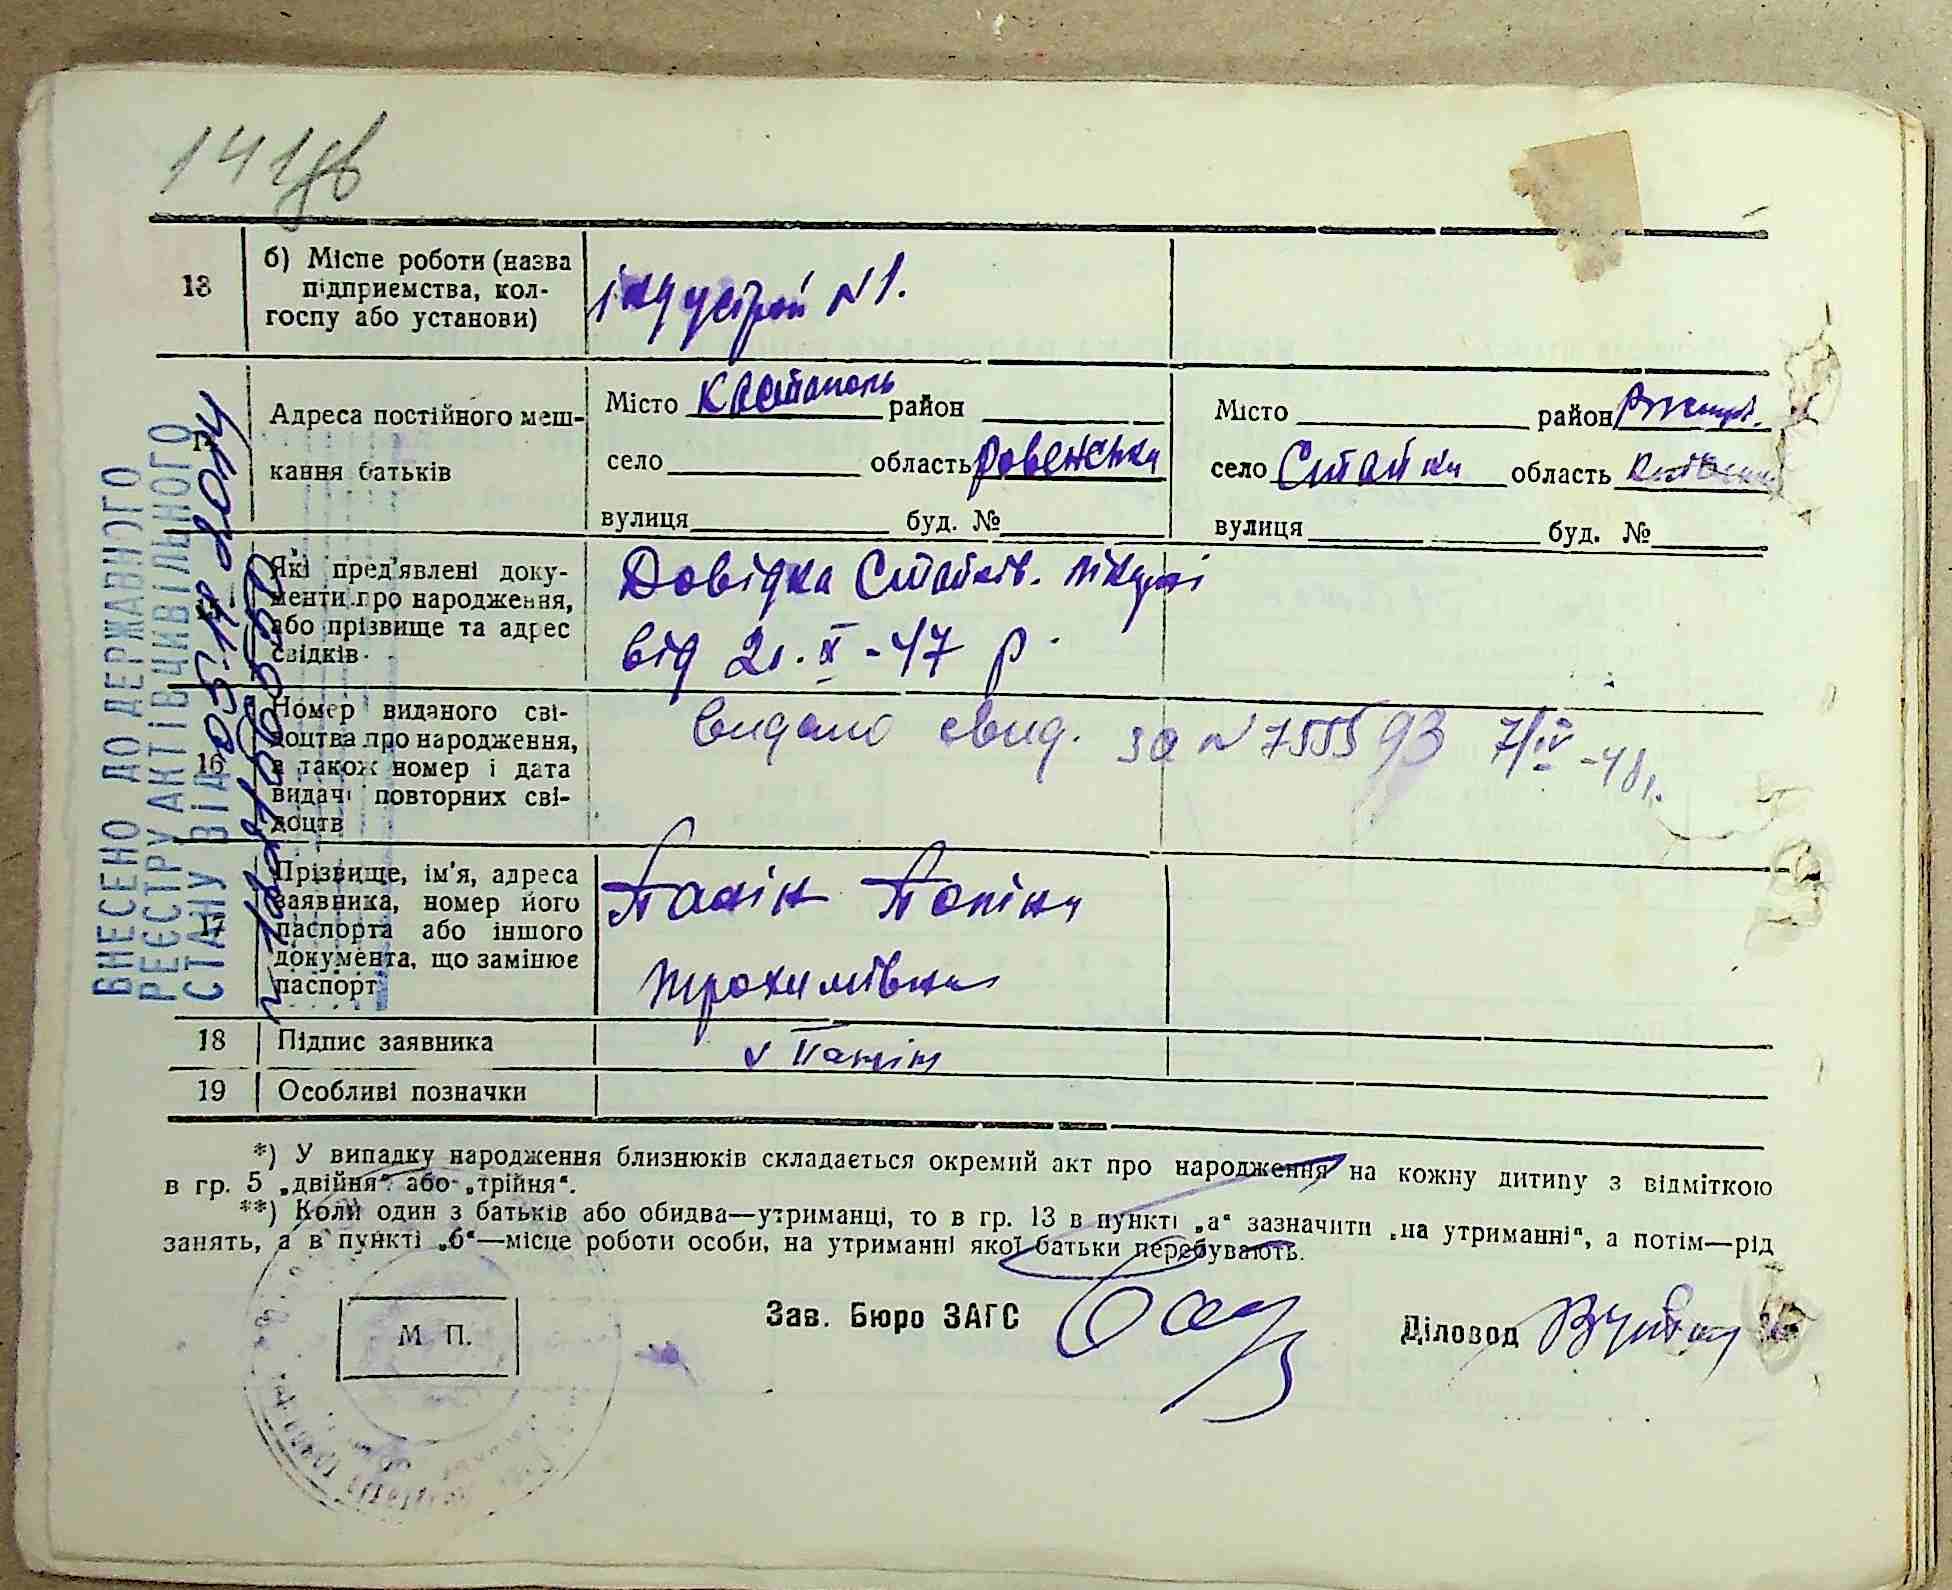 13
б) Місце роботи (назва
підприємства, кол-
госпу або установи)
індустрой №1.
Адреса постійного меш-
кання батьків
Місто Кастополь район
село область Ровенська
вулиця буд. №
Місто район
село Стайки область
вулиця буд. №
Які пред'явлені доку-
менти про народження,
або прізвище та адрес
свідків
Довідка Стайків.
від 21.X-47 р.
16
Номер виданого сві-
доцтва про народження,
а також номер і дата
видачі повторних сві-
доцтв
видано свид. за №755593 7/IV-48г.
17
Прізвище, ім'я, адреса
заявника, номер його
паспорта або іншого
документа, що замінює
паспорт
Трохимівна
18 Підпис заявника
19 Особливі позначки
ВНЕСЕНО ДО ДЕРЖАВНОГО
РЕЄСТРУ АКТІВ ЦИВІЛЬНОГО
СТАНУ ВІД
*) У випадку народження близнюків складається окремий акт про народження на кожну дитину з відміткою
в гр. 5 „двійня" або „трійня".
**) Коли один з батьків або обидва—утриманці, то в гр. 13 в пункті „а" зазначити „на утриманні", а потім—рід
занять, а в пункті „б"—місце роботи особи, на утриманні якої батьки перебувають.
М П.
Зав. Бюро ЗАГС
Діловод